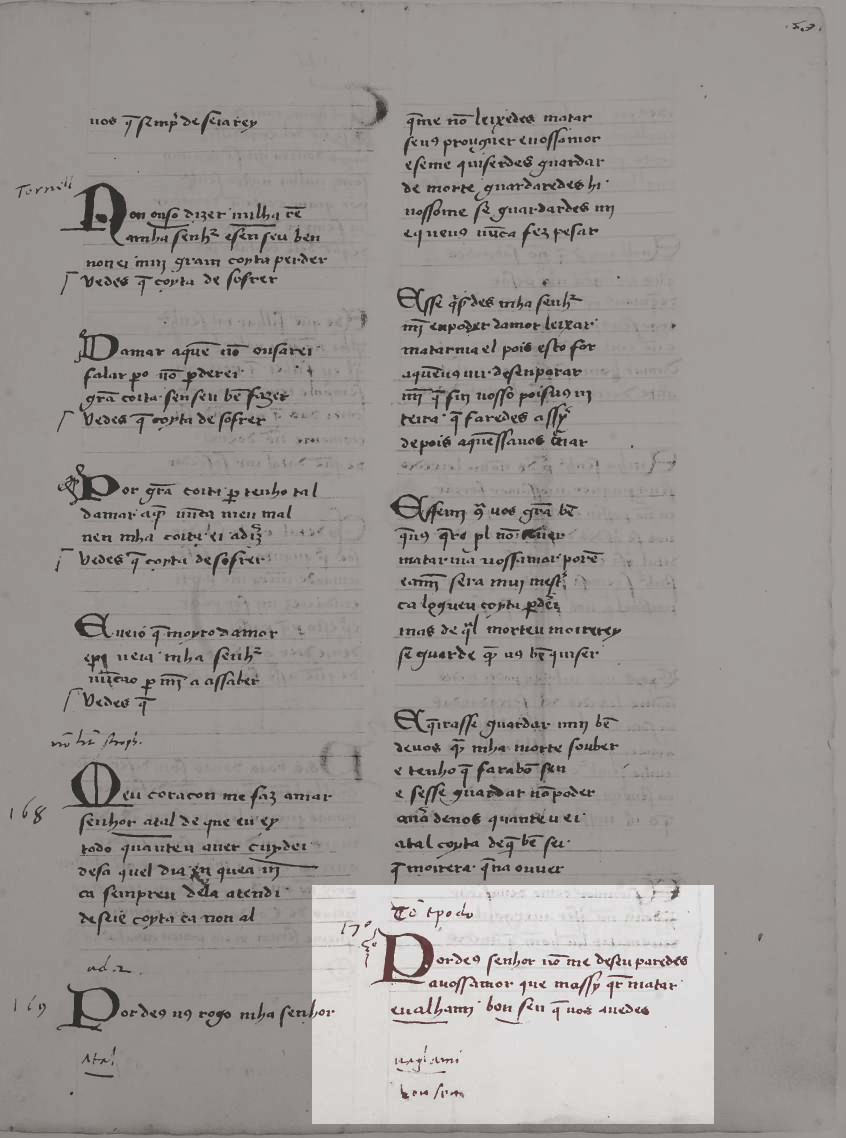 uos q̄ semp̄ deseiarey
Tornel
Non ouso dizer nulha rē
amha senhʳ esen seu ben
non ei mui gram coyta perder
Vedes q̄ coyta de sofrer
Damar aquē nō ousarei
falar ꝑo nō ꝑderei
grā coita sen seu bē fazer
Vedes q̄ coyta de sofrer
Por grā coita ꝑ tenho tal
damar a q̄ nūca meu mal
nen mha coita ei a diz̄
Vedes q̄ coyta de sofrer
E ueio q̄ moyro damor
epꝰ ueia mha senhʳ
nūcao ꝑ mī a assaber
Vedes q̄
168
Meu coracon me faz amar
senhor atal de que eu ey
todo quanteu auer cuydei
desa quel dia en quea ui
ca sempreu dela atendi
desteē coyta ca non al
169
Pordeꝯ uꝯ rogo mha senhor
Atal
57
q̄me nō leixedes matar
seuꝯ prouguer euossamor
eseme quiserdes guardar
de morte guardaredes hi
uossome se guardardes mi
eq̄ueuꝯ nūca fez pesar
Esse q̄s̄des mha senhʳ
mī enpoder damor leixar
matarma el pois esto for
aquēuꝯ uir desenparar
mī q̄ fui uosso poisuꝯ ui
terra q̄ faredes assy
depois aquēssauos tʳnar
Essemi q̄ uos grā bē
q̄uꝯ q̄ro pl nō ualuer
matarma uossamor porē
eamī sera mui mest̄
ca logueu coyta ꝑdēi
mas de q̄l morteu moirerey
se guarde q̄ uꝯ bē quiser
E q̄irasse guardar mui bē
deuos q̄ mha morte souber
e tenho q̄ fara bō sen
e sesse guardar nō poder
auā deuos quanteu ei
atal coyta deq̄ bē sei
q̄ moirera q̄na ouuer
170
Pordeꝯ senhor nō me desenparedes
auossamor que massy q̄r matar
eualhami bon sen q̄ uos auedes
uaghami
bon sen